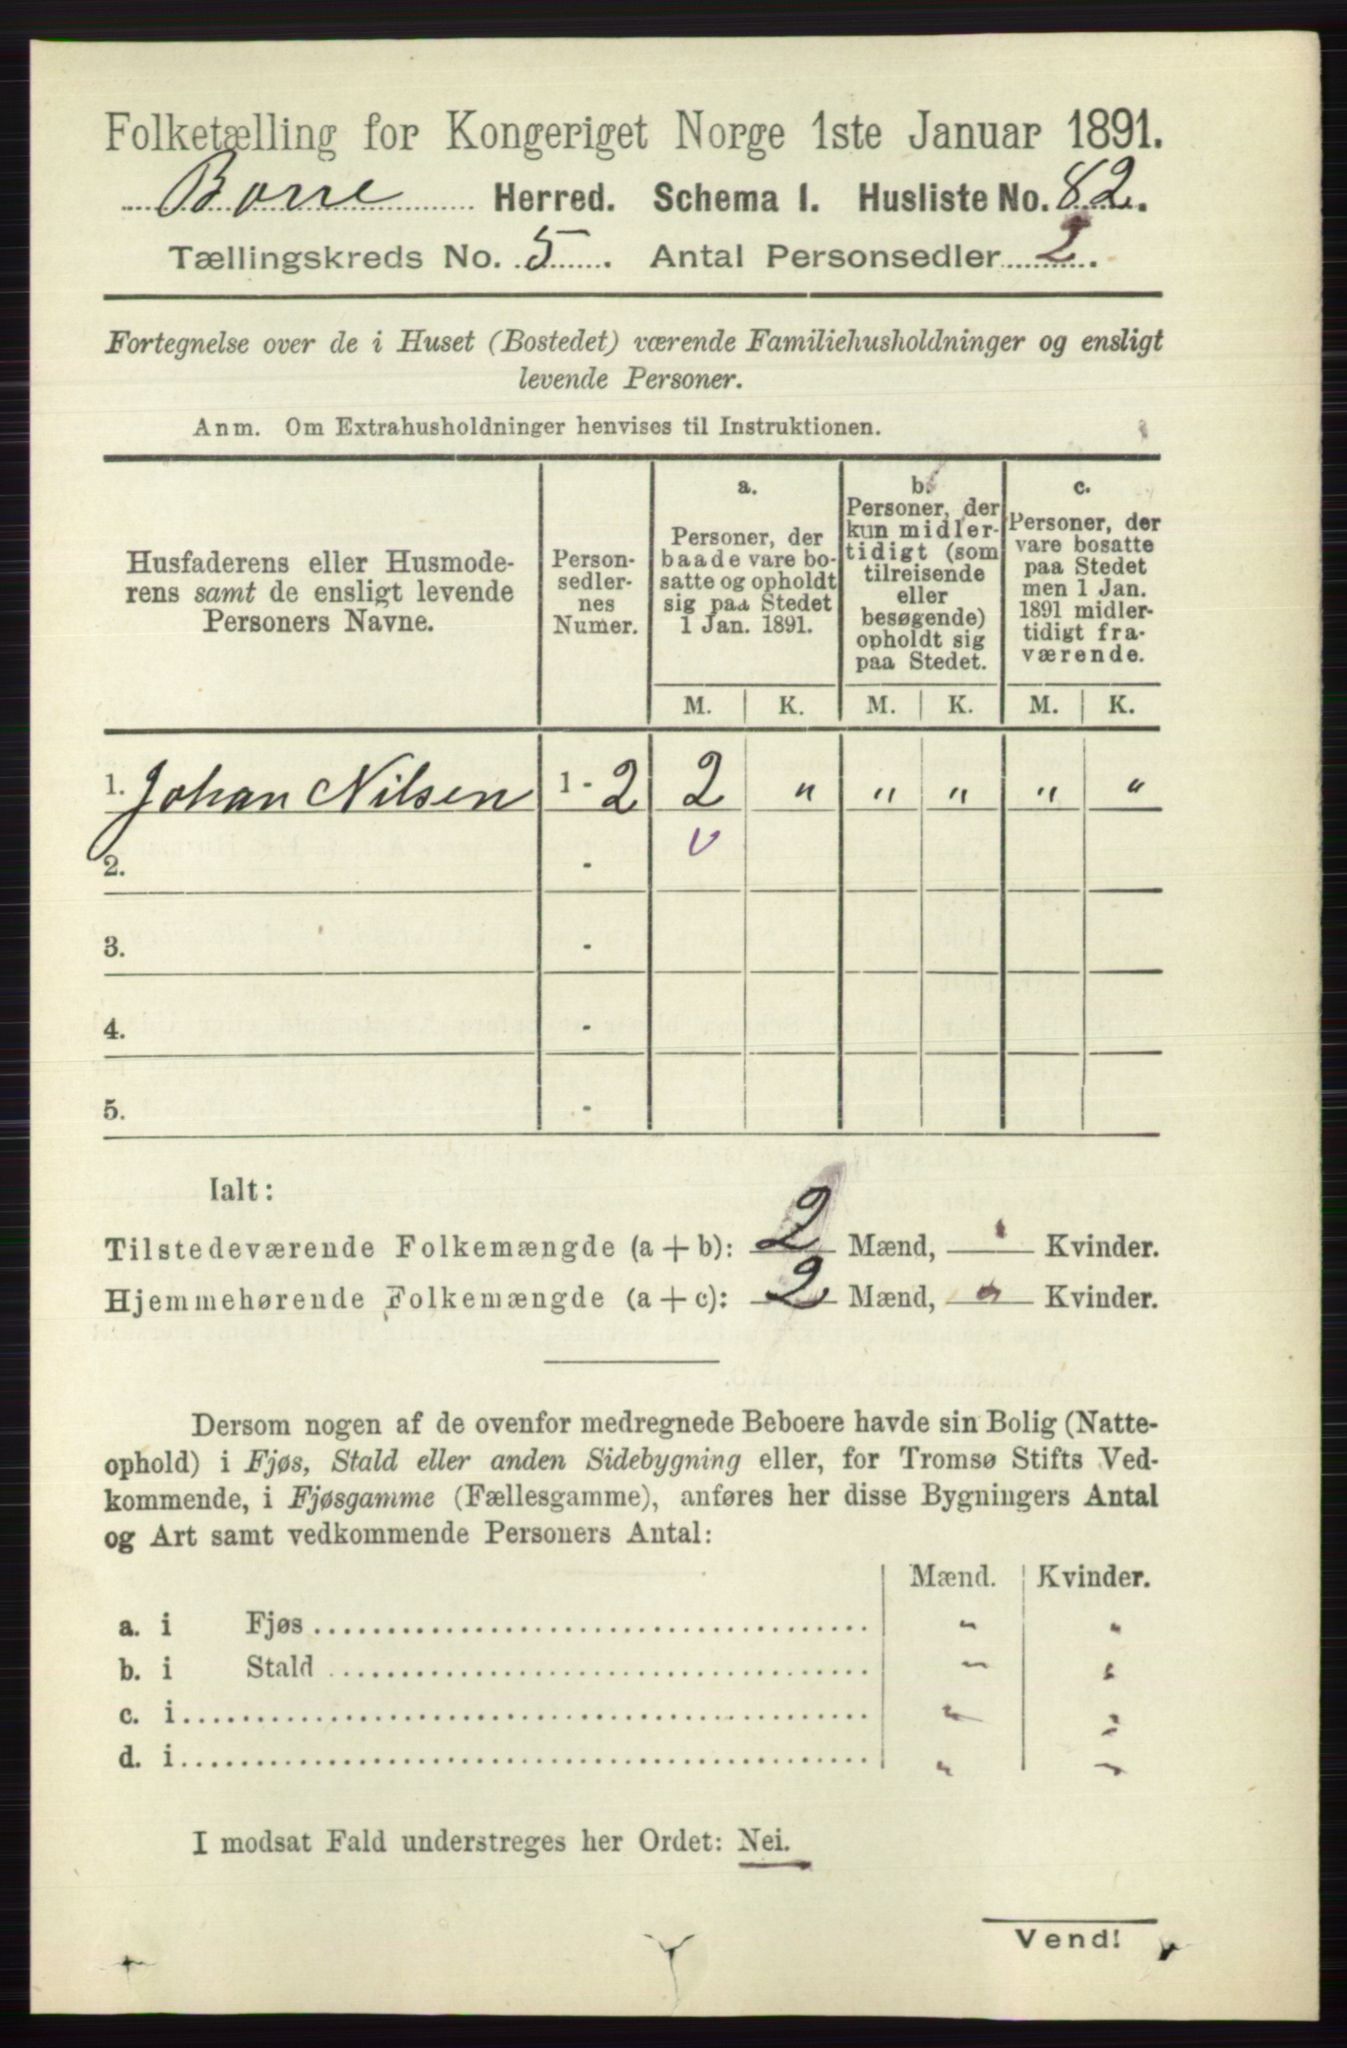 Folketælling for Kongeriget Norge 1ste Januar 1891.
Borre Herred. Schema I. Husliste No. 82.
Tællingskreds No. 5. Antal Personsedler 2.
Fortegnelse over de i Huset (Bostedet) værende Familiehusholdninger og ensligt
levende Personer.
Anm. Om Extrahusholdninger henvises til Instruktionen.
Husfaderens eller Husmode-
rens samt de ensligt levende
Personers Navne.
Person-
sedler-
nes
Numer.
a.
Personer, der
baade vare bo-
satte og opholdt
sig paa Stedet
1 Jan. 1891.
b.
Personer, der
kun midler-
tidigt (som
tilreisende
eller
besøgende)
opholdt sig
paa Stedet.
c.
Personer, der
vare bosatte
paa Stedet
men 1 Jan.
1891 midler-
tidigt fra-
værende.
M. K. M. K. M. K.
1. Johan Nilsen 1 - 2 2 " " " " "
2. -
3. -
4. -
5. -
Ialt:
Tilstedeværende Folkemængde (a + b): 2 Mænd, Kvinder.
Hjemmehørende Folkemængde (a + c): 2 Mænd, Kvinder.
Dersom nogen af de ovenfor medregnede Beboere havde sin Bolig (Natte-
ophold) i Fjøs, Stald eller anden Sidebygning eller, for Tromsø Stifts Ved-
kommende, i Fjøsgamme (Fællesgamme), anføres her disse Bygningers Antal
og Art samt vedkommende Personers Antal:
Mænd. Kvinder.
a. i Fjøs " "
b. i Stald " "
c. i " "
d. i " "
I modsat Fald understreges her Ordet: Nei.
Vend!